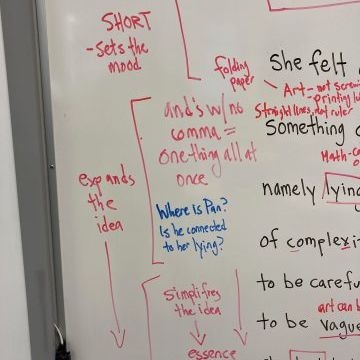 SHORT
-sets the
mood
folding
paper
She felt
Art - not
printing
Straight lines, not ruler
and's w/ no
comma =
one thing all at
once
something
Math-
expands
the
idea
namely lying
Where is Pan?
Is he connected
to her lying?
of complexi
simplifies
the idea
to be carefu
art can b
to be vague
essence